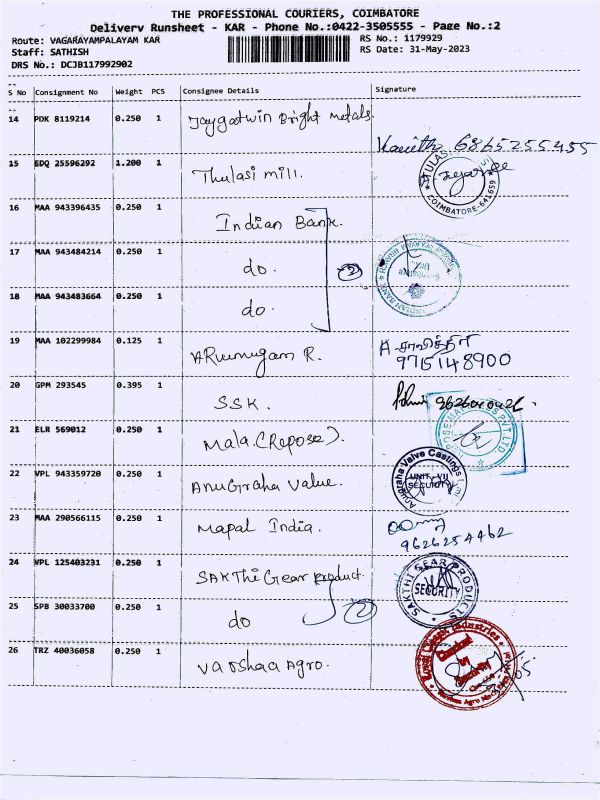 THE PROFESSIONAL COURIERS, COIMBATORE
Delivery Runsheet - KAR - Phone No.:0422-3505555 - Page No.:2
Route: VAGARAYAMPALAYAM KAR
RS No.: 1179929
Staff: SATHISH
RS Date: 31-May-2023
DRS No.: DCJB117992902
S No Consignment No Weight PCS Consignee Details Signature
14 PDK 8119214 0.250 1 Jaygatwin Bright metals.
15 EDQ 25596292 1.200 1 Thulasi mill.
COIMBATORE-641659
16 MAA 943396435 0.250 1 Indian Bank.
17 MAA 943484214 0.250 1 do. (2)
INDIAN BANK
18 MAA 943483664 0.250 1 do.
19 MAA 102299984 0.125 1 ARumugam R.
A. சாவித்திரி
9715148900
20 GPM 293545 0.395 1 SSK.
21 ELR 569012 0.250 1 Mala.(Repose).
PVT LTD
22 VPL 943359720 0.250 1 AnuGraha Value.
Anugraha Valve Castings
UNIT-VII
SECURITY
23 MAA 290566115 0.250 1 Mapal India.
9626254462
24 VPL 125403231 0.250 1 SAKThi Gear product.
SAKTHI GEAR PRODUCTS
SECURITY
25 SPB 30033700 0.250 1 do (2)
26 TRZ 40036058 0.250 1 Varshaa Agro.
Industries
Checked
by
Security